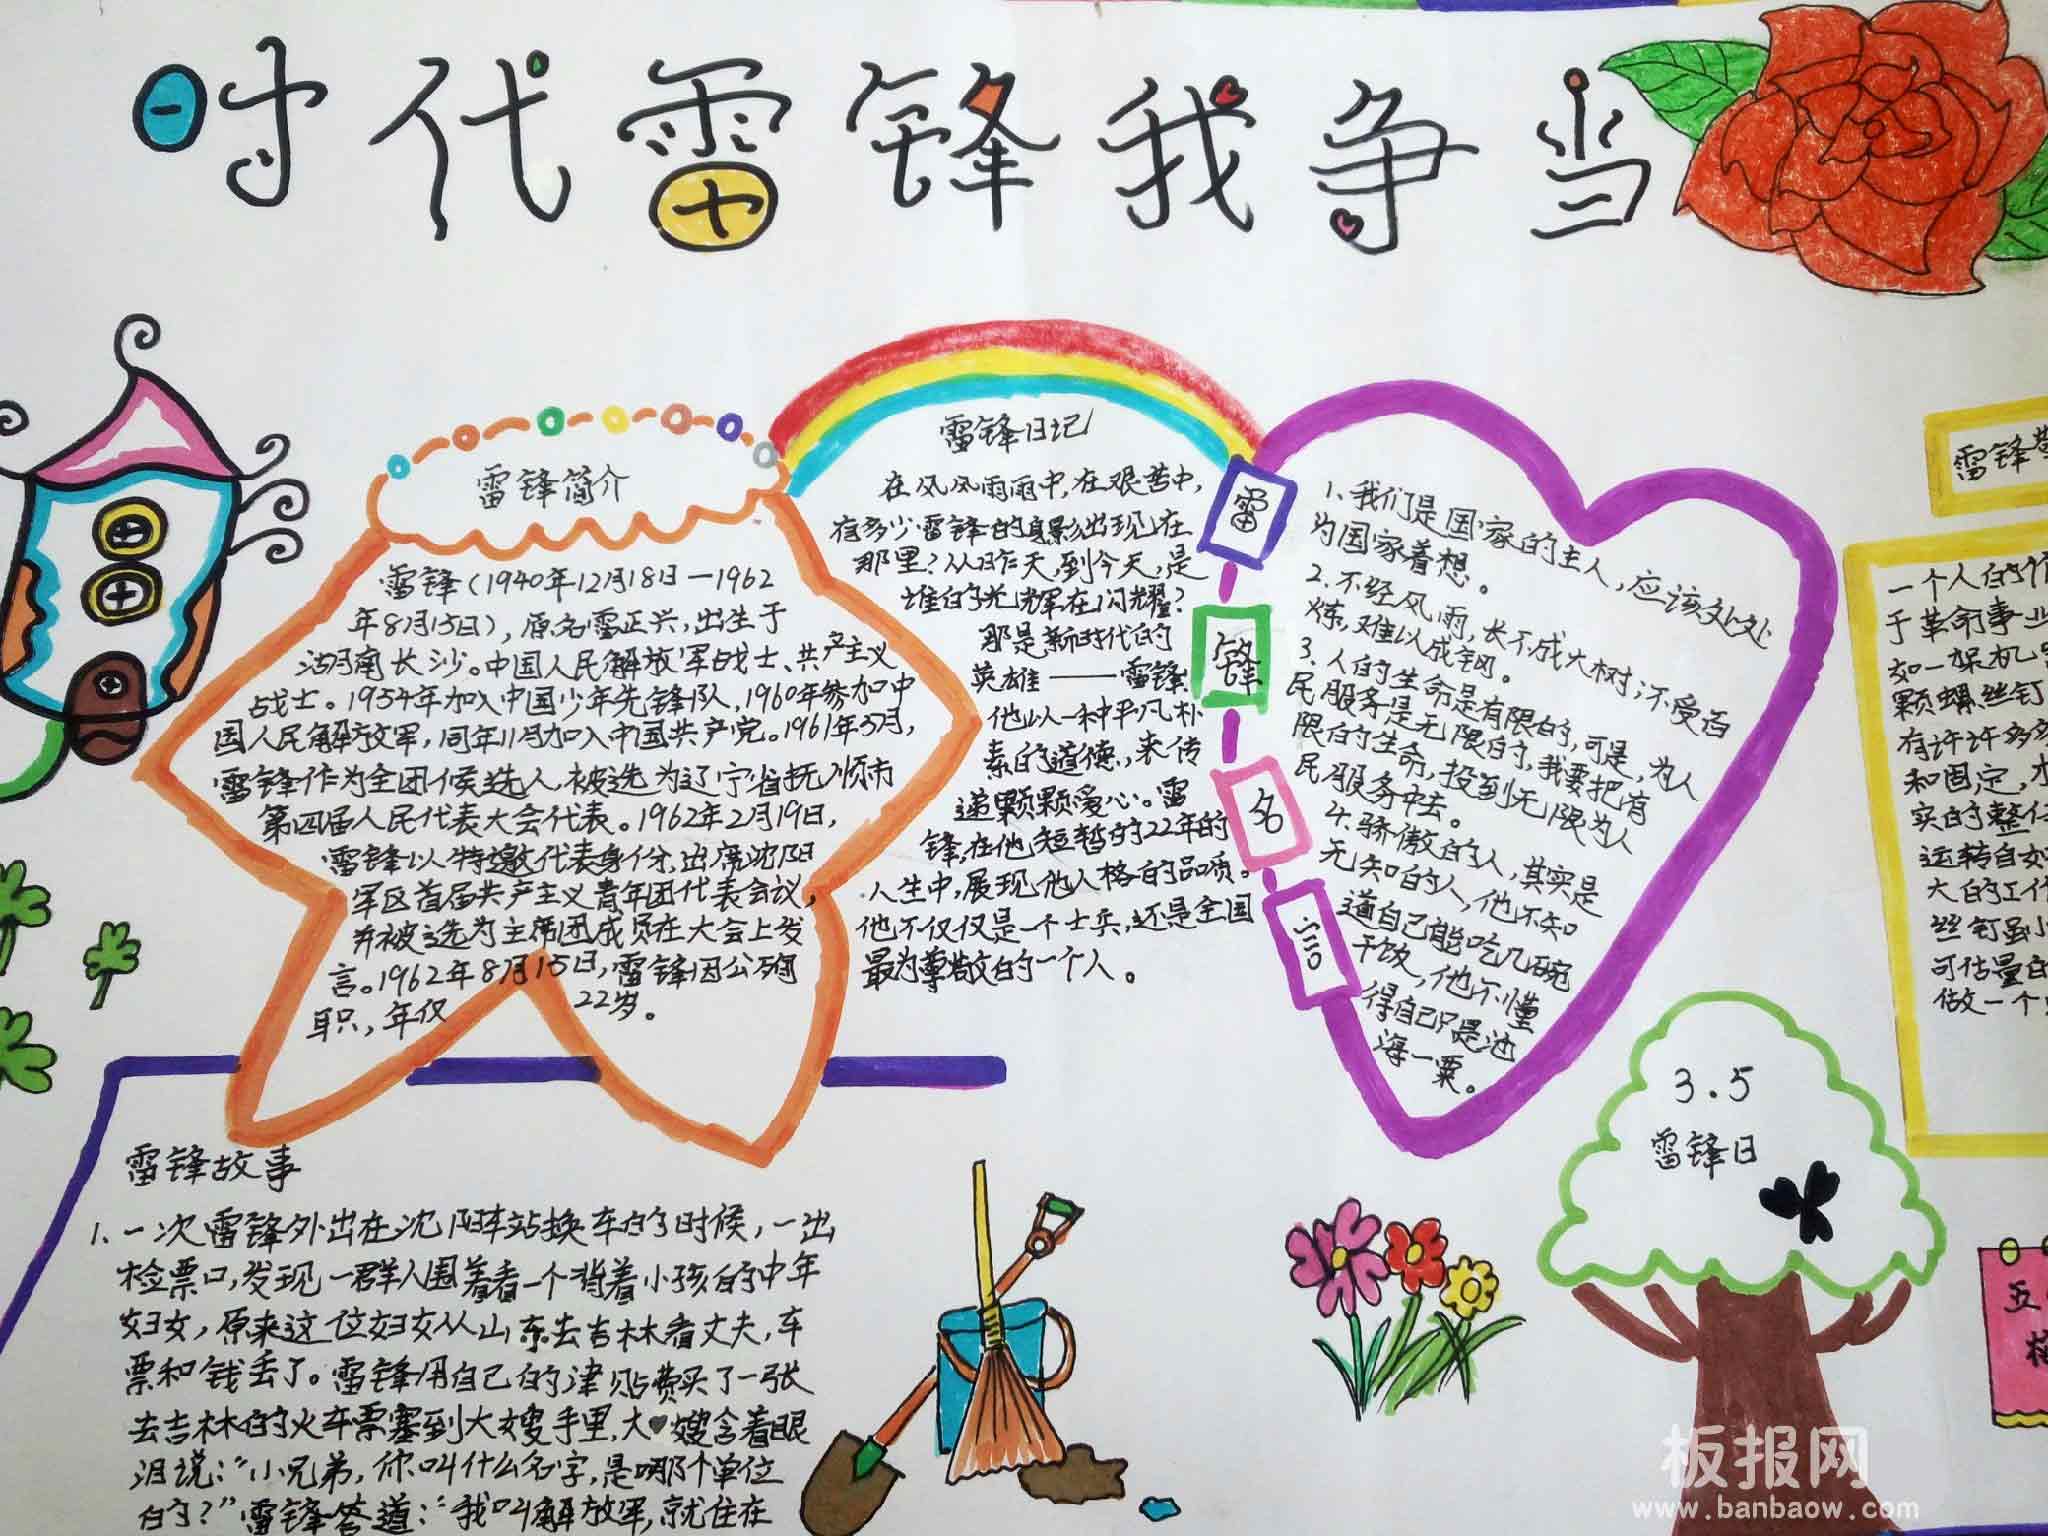 时代雷锋我争当
雷锋简介
雷锋(1940年12月18日—1962
年8月15日),原名雷正兴,出生于
湖南长沙。中国人民解放军战士、共产主义
战士。1954年加入中国少年先锋队,1960年参加中
国人民解放军,同年11月加入中国共产党。1961年5月,
雷锋作为全团候选人被选为辽宁省抚顺市
第四届人民代表大会代表。1962年2月19日,
雷锋以特邀代表身份,出席沈阳
军区首届共产主义青年团代表会议,
并被选为主席团成员在大会上发
言。1962年8月15日,雷锋因公殉
职,年仅22岁。
雷锋日记
在风风雨雨中,在艰苦中,
有多少雷锋的身影出现在
那里?从昨天,到今天,是
谁的光辉在闪耀?
那是新时代的
英雄——雷锋!
他以一种平凡朴
素的道德,来传
递颗颗爱心。雷
锋,在他短暂的22年的
人生中,展现他人格的品质。
他不仅仅是一个士兵,还是全国
最为尊敬的一个人。
雷
锋
名
言
1.我们是国家的主人,应该处处
为国家着想。
2.不经风雨,长不成大树;不受百
炼,难以成钢。
3.人的生命是有限的,可是,为人
民服务是无限的,我要把有
限的生命,投到无限为人
民服务中去。
4.骄傲的人,其实是
无知的人,他不知
道自己能吃几碗
干饭,他不懂
得自己只是沧
海一粟。
雷锋
一个人的作
于革命事业
如一架机
颗螺丝钉
有许许多多
和固定,
实的整体
运转自如
大的工作
丝钉虽小
可估量的
做一个
3.5
雷锋日
五
雷锋故事
1.一次雷锋外出在沈阳车站换车的时候,一出
检票口,发现一群人围着看一个背着小孩的中年
妇女,原来这位妇女从山东去吉林看丈夫,车
票和钱丢了。雷锋用自己的津贴费买了一张
去吉林的火车票塞到大嫂手里,大嫂含着眼
泪说:“小兄弟,你叫什么名字,是哪个单位
的?”雷锋答道:“我叫解放军,就住在
板报网
www.banbaow.com